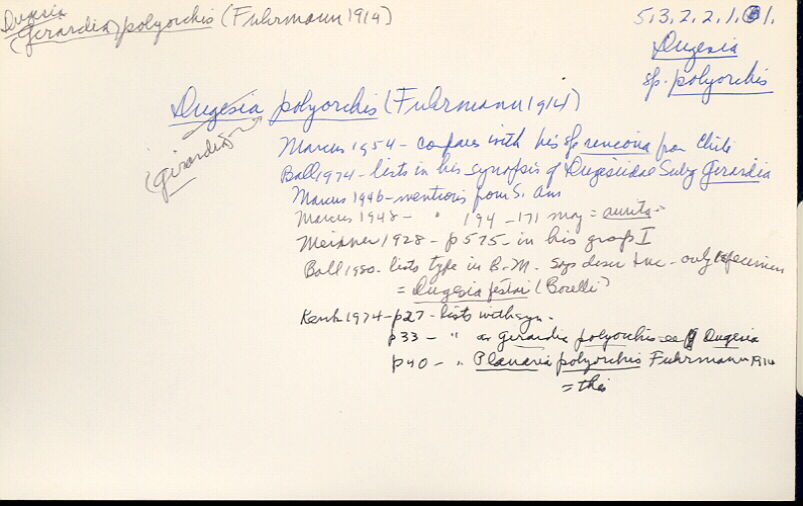 Dugesia
(Girardia) polyorchis (Fuhrmann 1914)
5.3.2.2.1.B1.
Dugesia
sp. polyorchis
Dugesia polyorchis (Fuhrmann 1914)
(Girardia)
Marcus 1954 - compares with his sp rincona from Chile
Ball 1974 - lists in his synopsis of Dugesiidae Subg Girardia
Marcus 1946 - mentions from S. Am
Marcus 1948 - " 194 - 171 may = aurita -
Meixner 1928 - p575 - in his group I
Ball 1980 - lists type in B.M. Says descr inc - only 1 specimen
= Dugesia festai (Borelli)
Kenk 1974 - p27 - lists with syn -
p33 - " as Girardia polyorchis = Dugesia
p40 - " Planaria polyorchis Fuhrmann 1914
= this